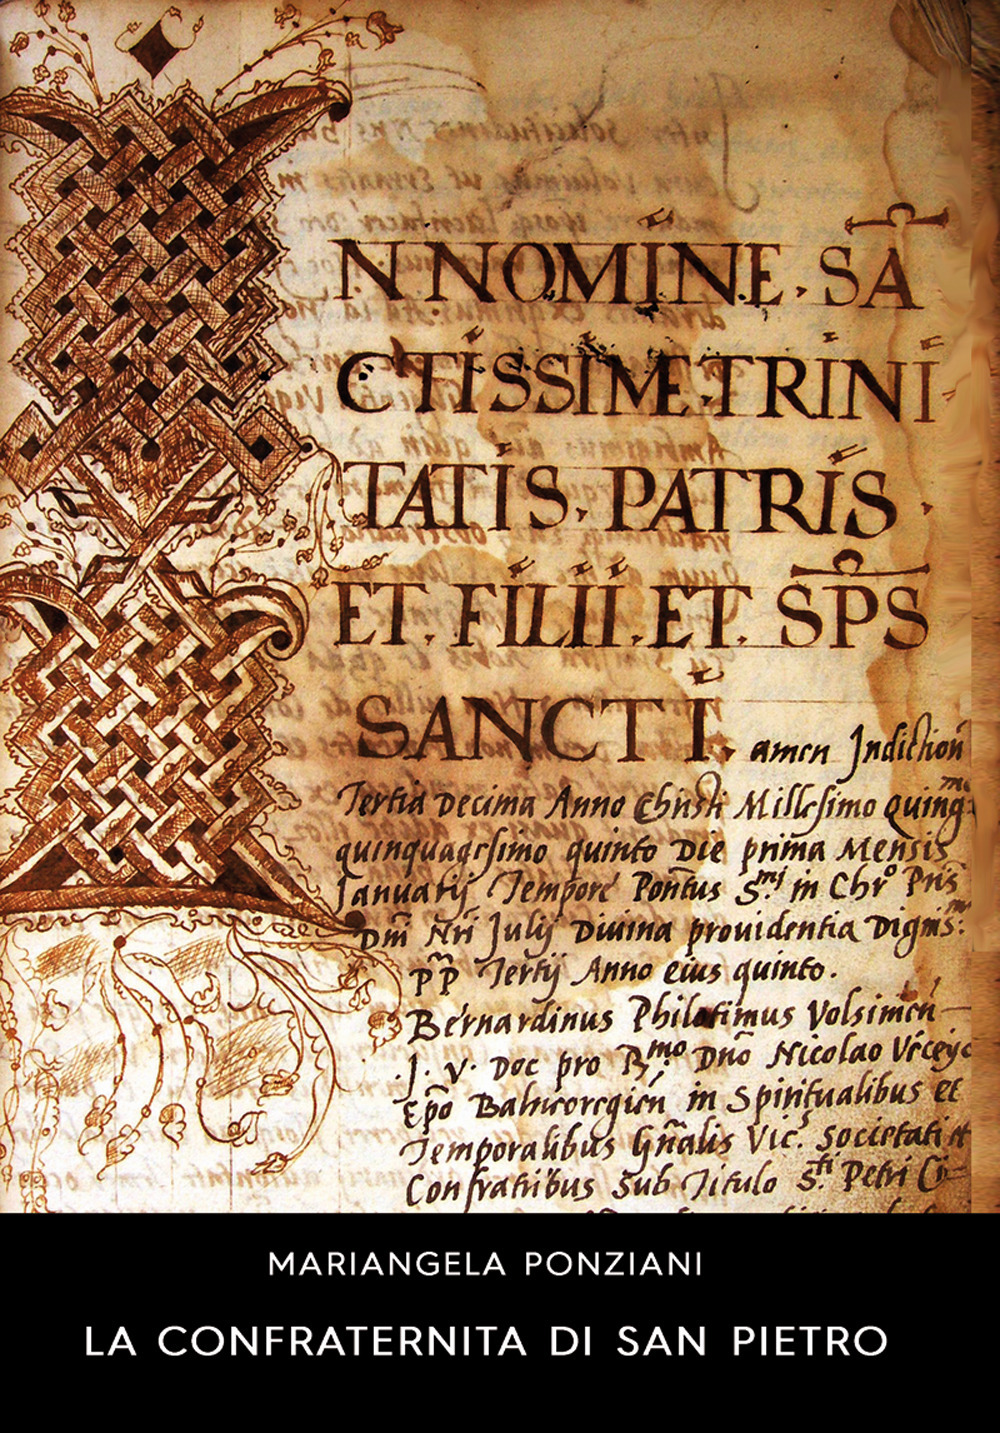 N NOMINE. SA
CTISSIME. TRINI
TATIS. PATRIS.
ET. FILII. ET. SPS
SANCTI. amen Indiction
Tertia Decima Anno Christi Millesimo quing
quinquagesimo quinto Die prima Mensis
Januarij Tempore Pontus S.mi in Chro Pris
Dni Nri Julij Diuina prouidentia Digmi.
pp Tertij Anno eius quinto.
Bernardinus Philotimus Volsimen
J. V. Doc pro R.mo Dno Nicolao
Epo Balneoregien in Spiritualibus et
Temporalibus Gnalis Vic. Societati et
Confratribus Sub Titulo S.ti Petri
MARIANGELA PONZIANI
LA CONFRATERNITA DI SAN PIETRO